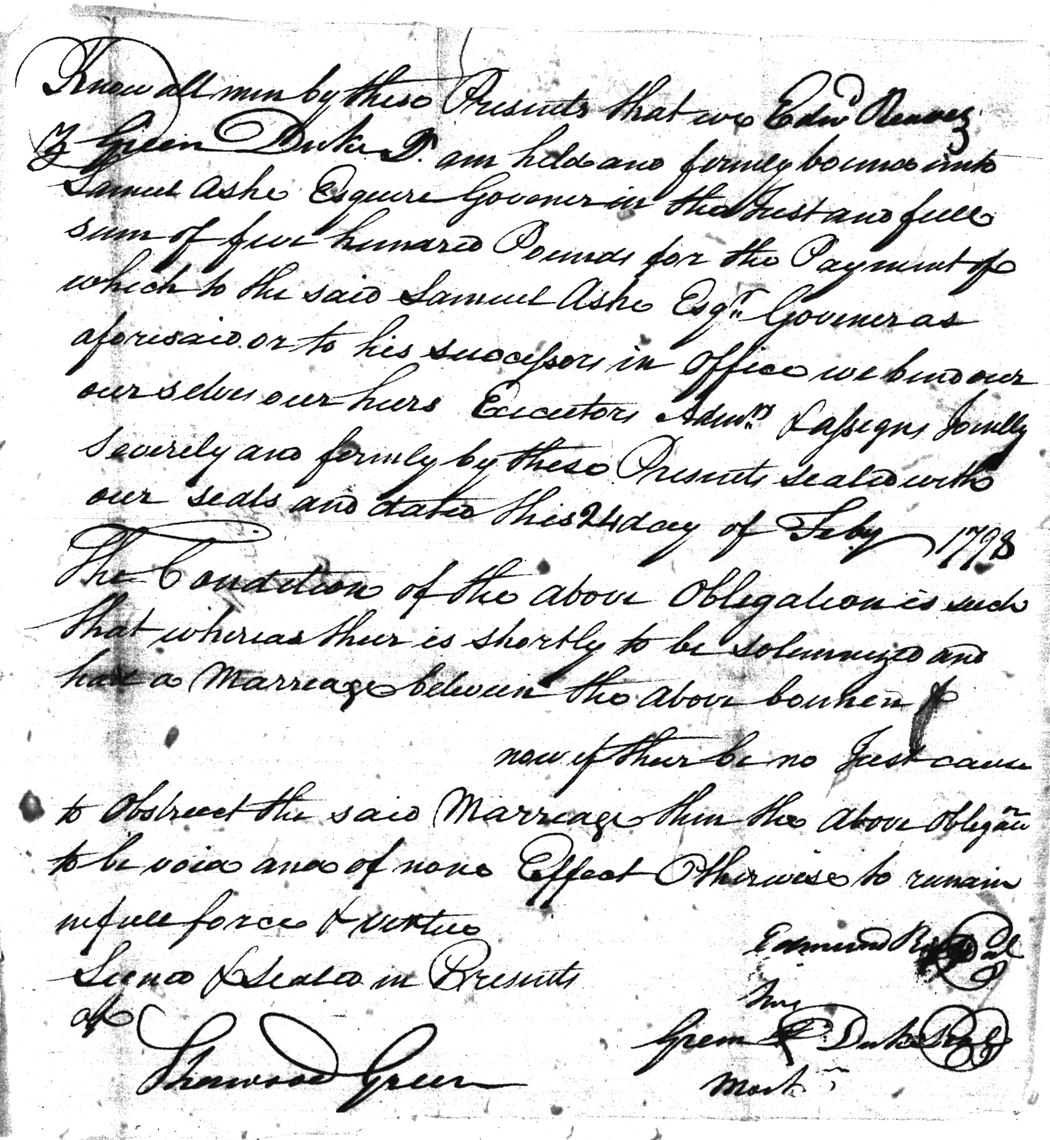 Know all men by these Presents that we Edmd Reaves
& Green Duke Dr. am held and firmly bound unto
Samuel Ashe Esquire Govener in the Just and full
Sum of five hundred Pounds for the Payment of
which to the said Samuel Ashe Esqr. Govener as
aforesaid or to his successors in office we bind our
our selves our heirs Executors Admrs. & assigns Jointly
Severely and firmly by these Presents sealed with
our seals and dated this 24 day of Feby 1798
The Condition of the above Obligation is such
that whereas their is shortly to be solemnized and
had a Marriage between the above bounen
now if their be no Just cause
to Obstruct the said Marriage then the above Obligatn
to be void and of none Effect Otherwise to remain
in full force & virtue
Signed & Sealed in Presents
off
Edmund
his
Green Duke
mark
Sherwood Green